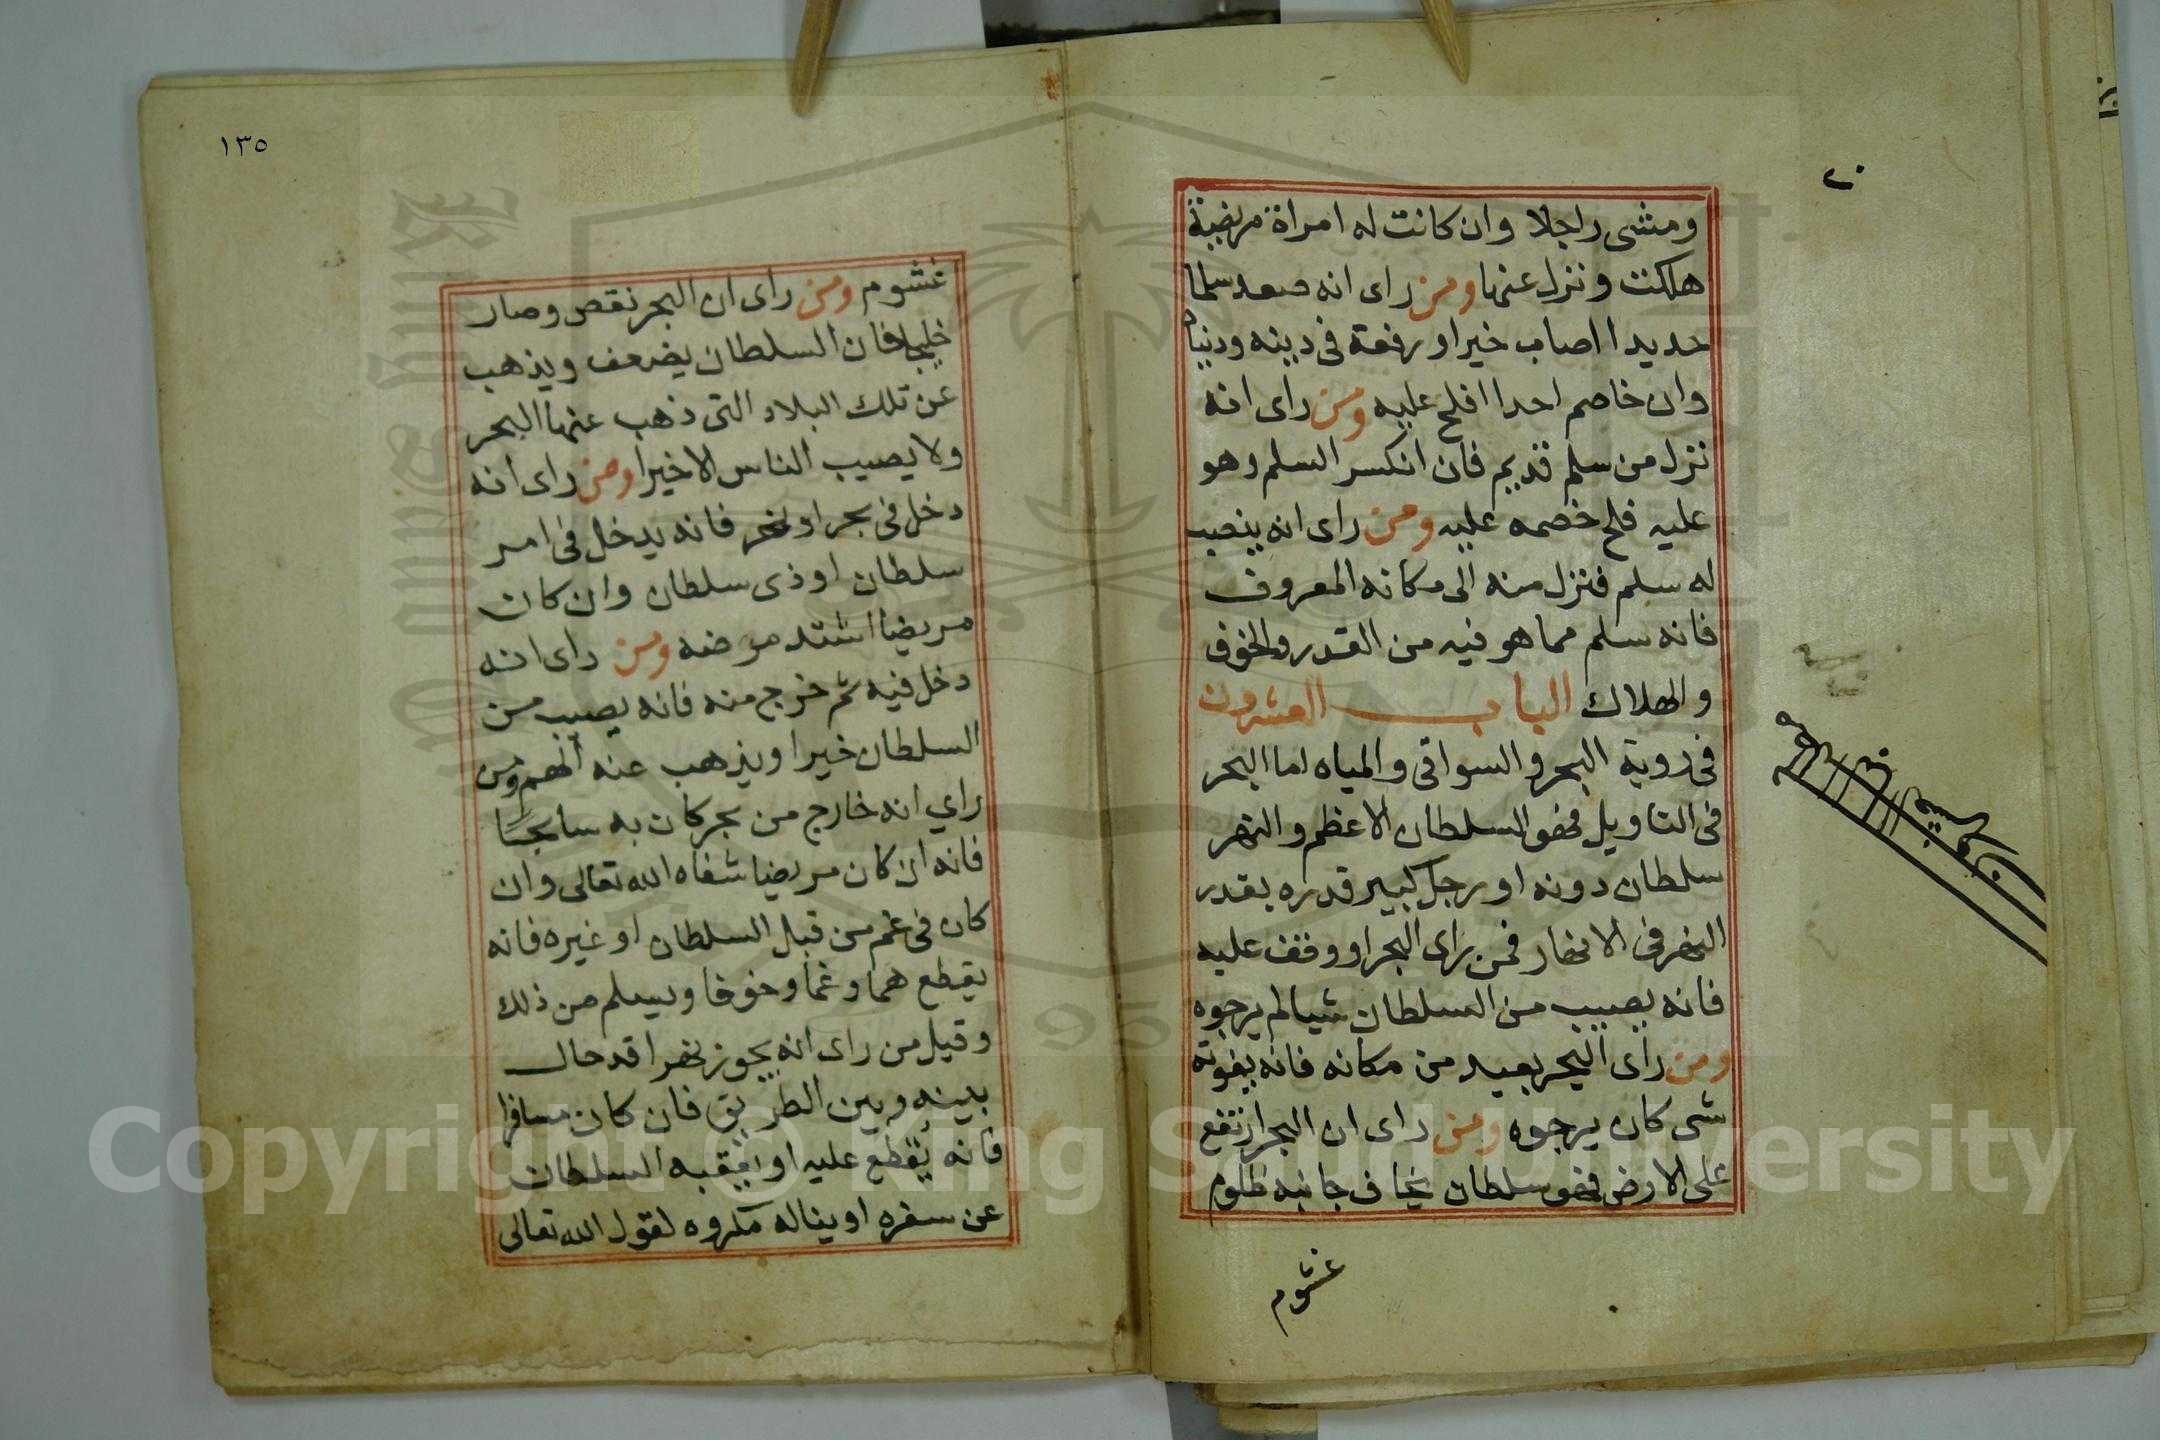 ومشى راجلا وان كانت له امراة مريضة
هلكت ونزل عنها ومن راى انه صعد سلما
حديدا اصاب خيرا ورفعة فى دينه ودنياه
وان خاصم احدا افلح عليه ومن راى انه
نزل من سلم قديم فان انكسر السلم وهو
عليه فلح خصمه عليه ومن راى انه ينصب
له سلم فنزل منه الى مكانه المعروف
فانه سلم مما هو فيه من القدر والخوف
والهلاك الباب العشرون
فى روية البحر والسواقى والمياه اما البحر
فى التاويل فهو السلطان الاعظم والنهر
سلطان دونه او رجل كبير قدره بقدر
النهر فى الانهار فمن راى البحر او وقف عليه
فانه يصيب من السلطان شيا لم يرجوه
ومن راى البحر بعيد من مكانه فانه يفوته
شى كان يرجوه ومن راى ان البحر ارتفع
على الارض فهو سلطان يخاف جانبه ظلوم
غشوم
٢٠
١٣٥
غشوم ومن راى ان البحر نقص وصار
خليجا فان السلطان يضعف ويذهب
عن تلك البلاد التى ذهب عنها البحر
ولا يصيب الناس الا خيرا ومن راى انه
دخل فى بحر او نهر فانه يدخل فى امر
سلطان او ذى سلطان وان كان
مريضا اشتد مرضه ومن راى انه
دخل فيه ثم خرج منه فانه يصيب من
السلطان خيرا ويذهب عنه الهم ومن
راي انه خارج من بحر كان به سابحا
فانه ان كان مريضا شفاه الله تعالى وان
كان فى غم من قبل السلطان او غيره فانه
يقطع هما وغما وخوفا ويسلم من ذلك
وقيل من راى انه يجوز نهرا قد حال
بينه وبين الطريق فان كان مسافرا
فانه يقطع عليه او السلطان
عن سفره او يناله مكروه لقول الله تعالى
Copyright © King Saud University